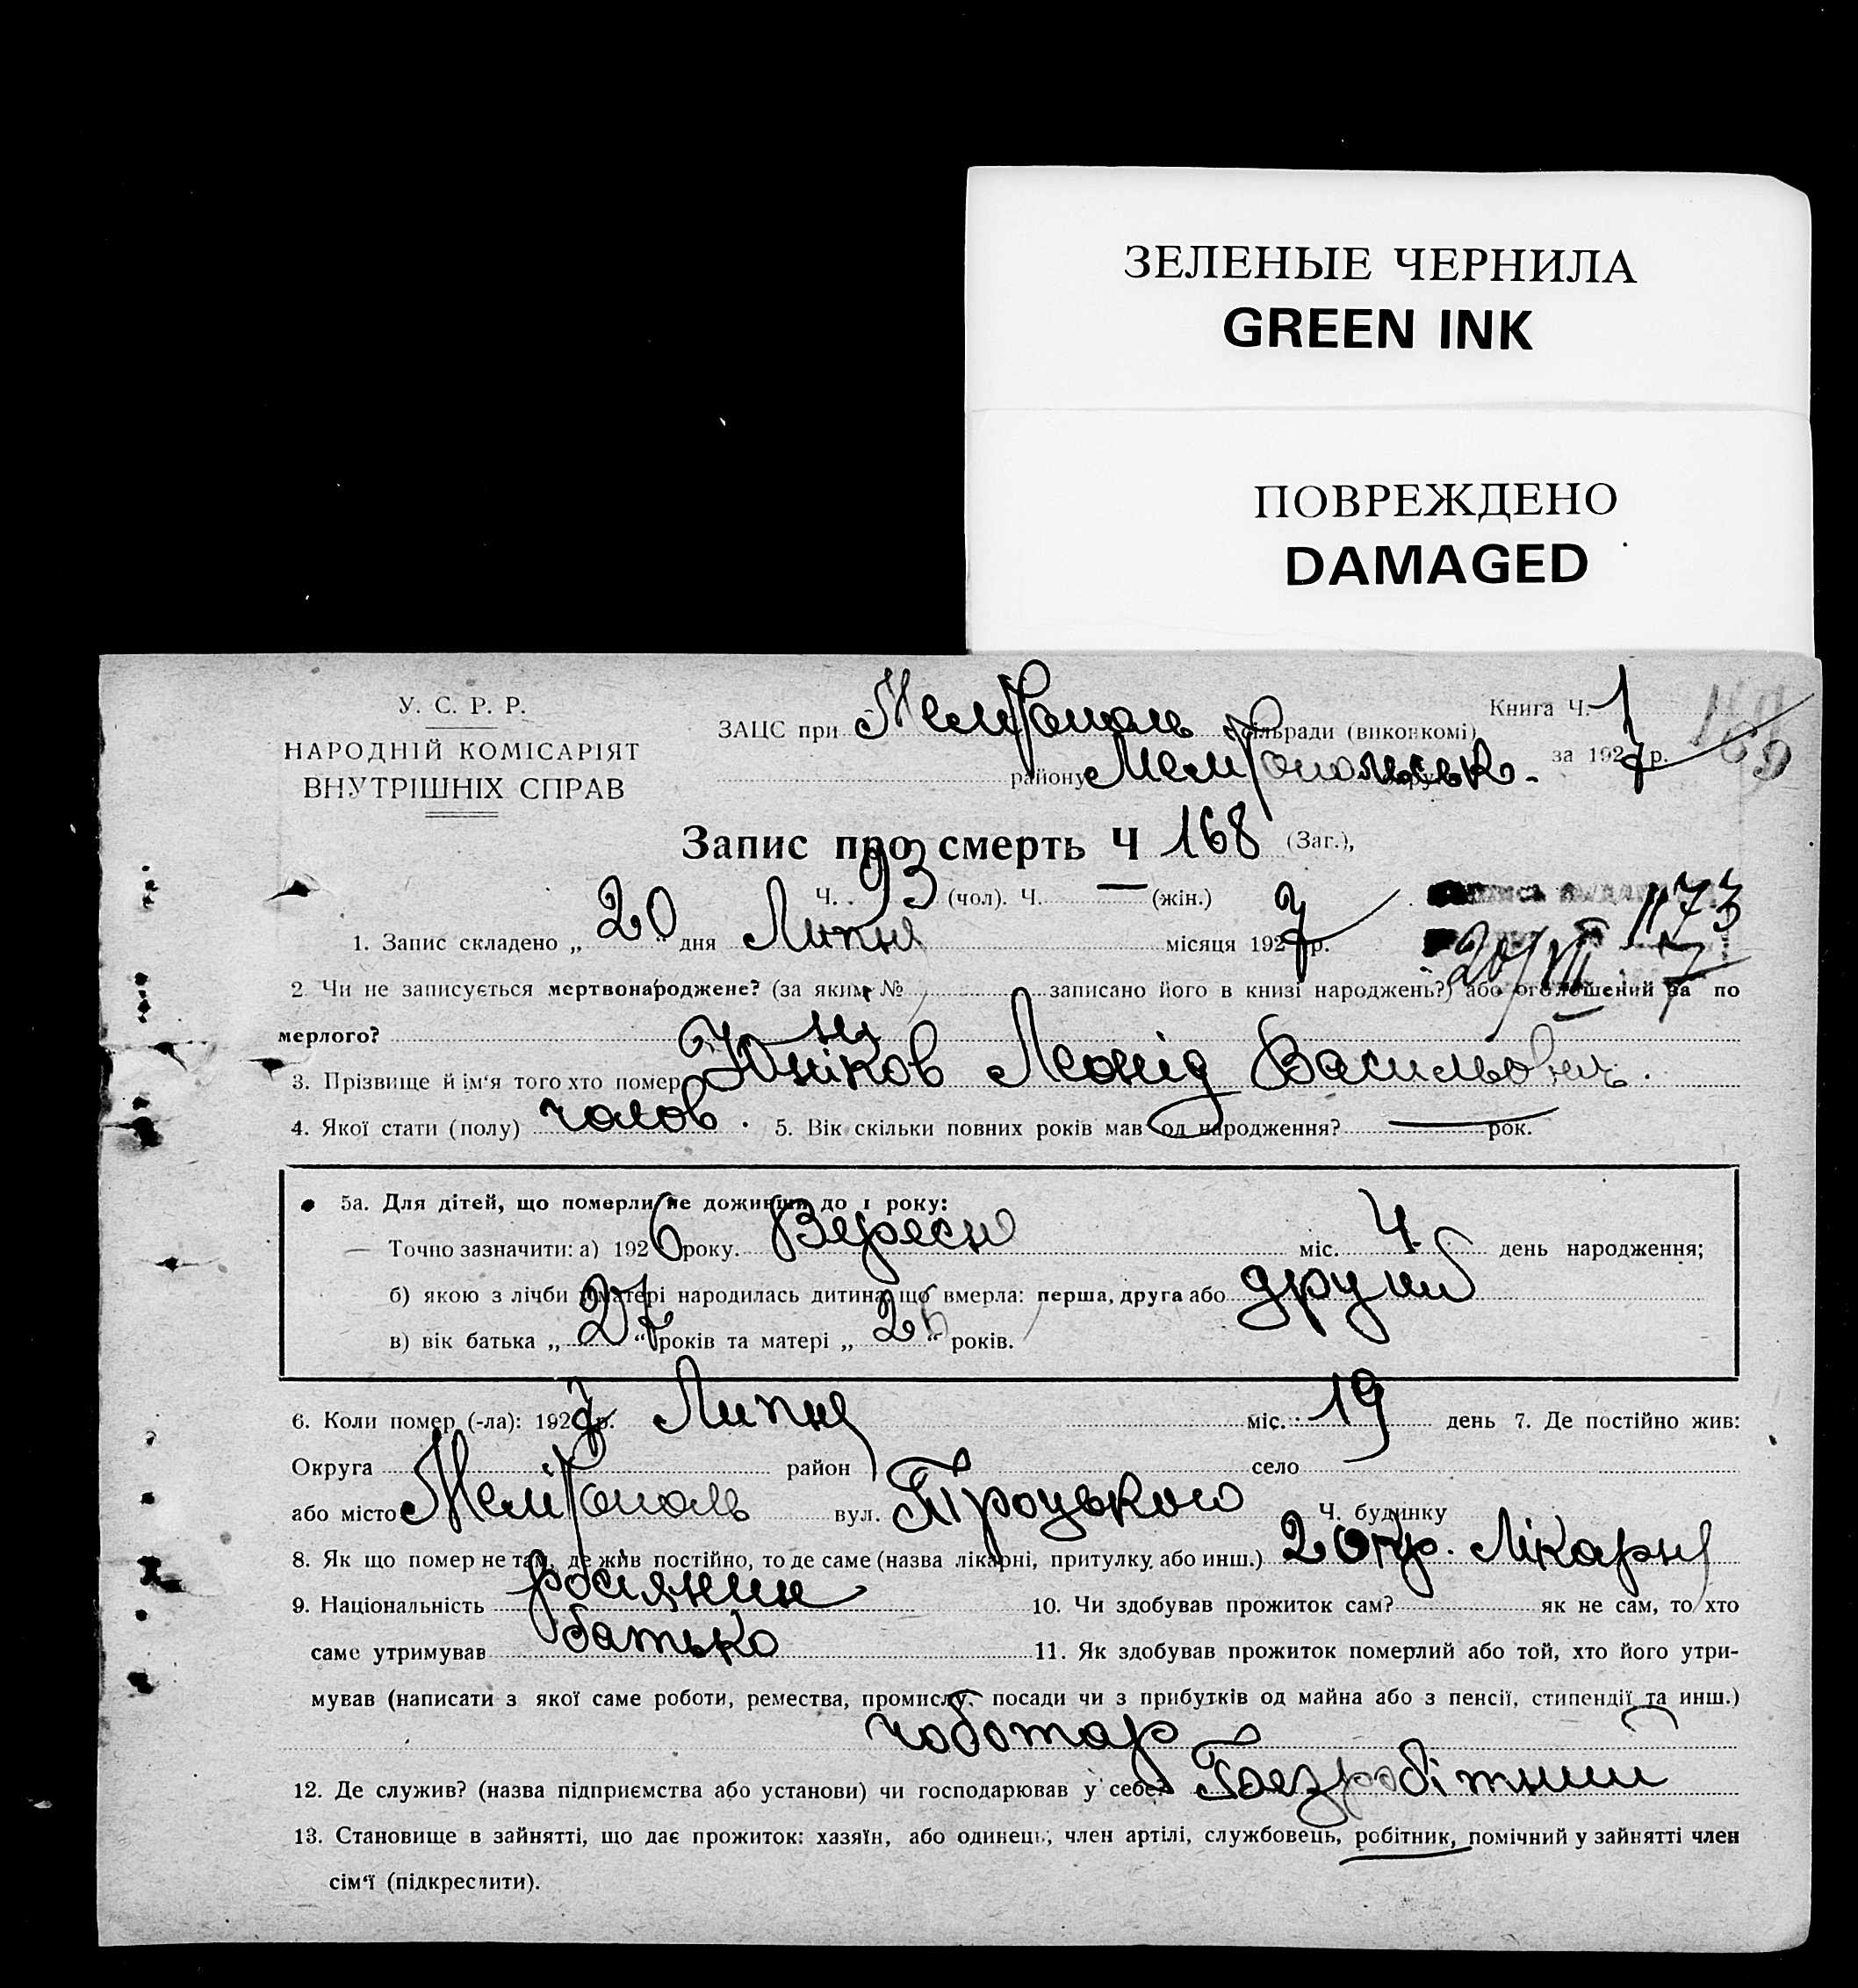 ЗЕЛЕНЫЕ ЧЕРНИЛА
GREEN INK
ПОВРЕЖДЕНО
DAMAGED
У. С. Р. Р.
НАРОДНІЙ КОМІСАРІЯТ
ВНУТРІШНІХ СПРАВ
ЗАЦС при Мелітополь сільради (виконкомі)
району Мелітопольськ.
Книга Ч. 1
за 1927 р.
169
Запис про смерть Ч 168 (Заг.),
Ч. 93 (чол). Ч. — (жін.)
1173
1. Запис складено „ 20 “ дня Липня місяця 1927 р.
20/VII 7
2 Чи не записується мертвонароджене? (за яким № записано його в книзі народжень?) або оголошений за по
мерлого?
3. Прізвище й ім'я того хто помер Леонід Васильович.
4. Якої стати (полу) чолов. 5. Вік скільки повних років мав од народження? — рок.
5а. Для дітей, що померли не доживши до 1 року:
Точно зазначити: а) 1926 року. Вересн міс. 4. день народження;
б) якою з лічби у матері народилась дитина, що вмерла: перша, друга або другий
в) вік батька „ 27 “ років та матері „ 26 “ років.
6. Коли помер (-ла): 1927 р. Липня міс. 19 день 7. Де постійно жив:
Округа район село
або місто Мелітополь вул. Троцького Ч. будинку
8. Як що помер не там, де жив постійно, то де саме (назва лікарні, притулку або инш.) 2 Окр. Лікарня
9. Національність росіянин 10. Чи здобував прожиток сам? як не сам, то хто
саме утримував батько 11. Як здобував прожиток померлий або той, хто його утри-
мував (написати з якої саме роботи, ремества, промислу, посади чи з прибутків од майна або з пенсії, стипендії та инш.)
чоботар
12. Де служив? (назва підприємства або установи) чи господарював у себе? Безробітний
13. Становище в зайнятті, що дає прожиток: хазяїн, або одинець, член артілі, службовець, робітник, помічний у зайнятті член
сім'ї (підкреслити).